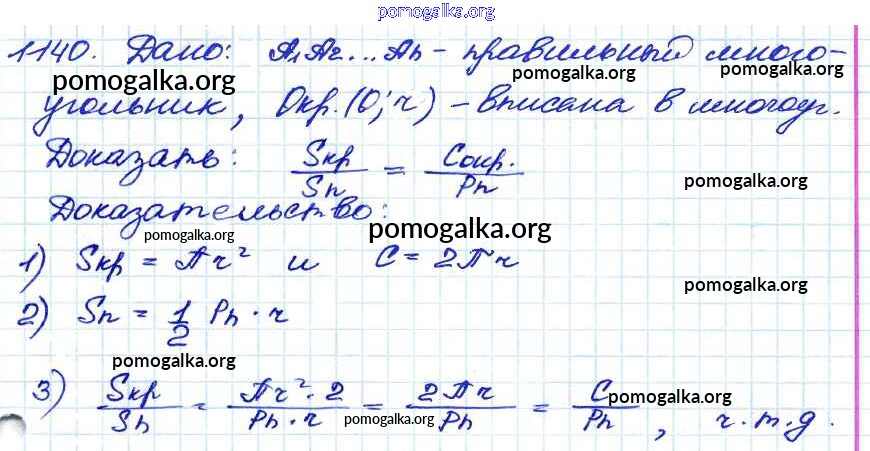 pomogalka.org
1140. Дано: A₁A₂...Aₙ - правильный много-
pomogalka.org pomogalka.org pomogalka.org
угольник, Окр.(O;r) - вписана в многоуг.
Доказать: Sкр/Sn = Cокр./Pn
pomogalka.org
Доказательство:
pomogalka.org pomogalka.org
1) Sкр = πr² и C = 2πr
pomogalka.org
2) Sn = 1/2 Pn · r
pomogalka.org
3) Sкр/Sn = πr²·2/Pn·r = 2πr/Pn = C/Pn, ч.т.д.
pomogalka.org
pomogalka.org